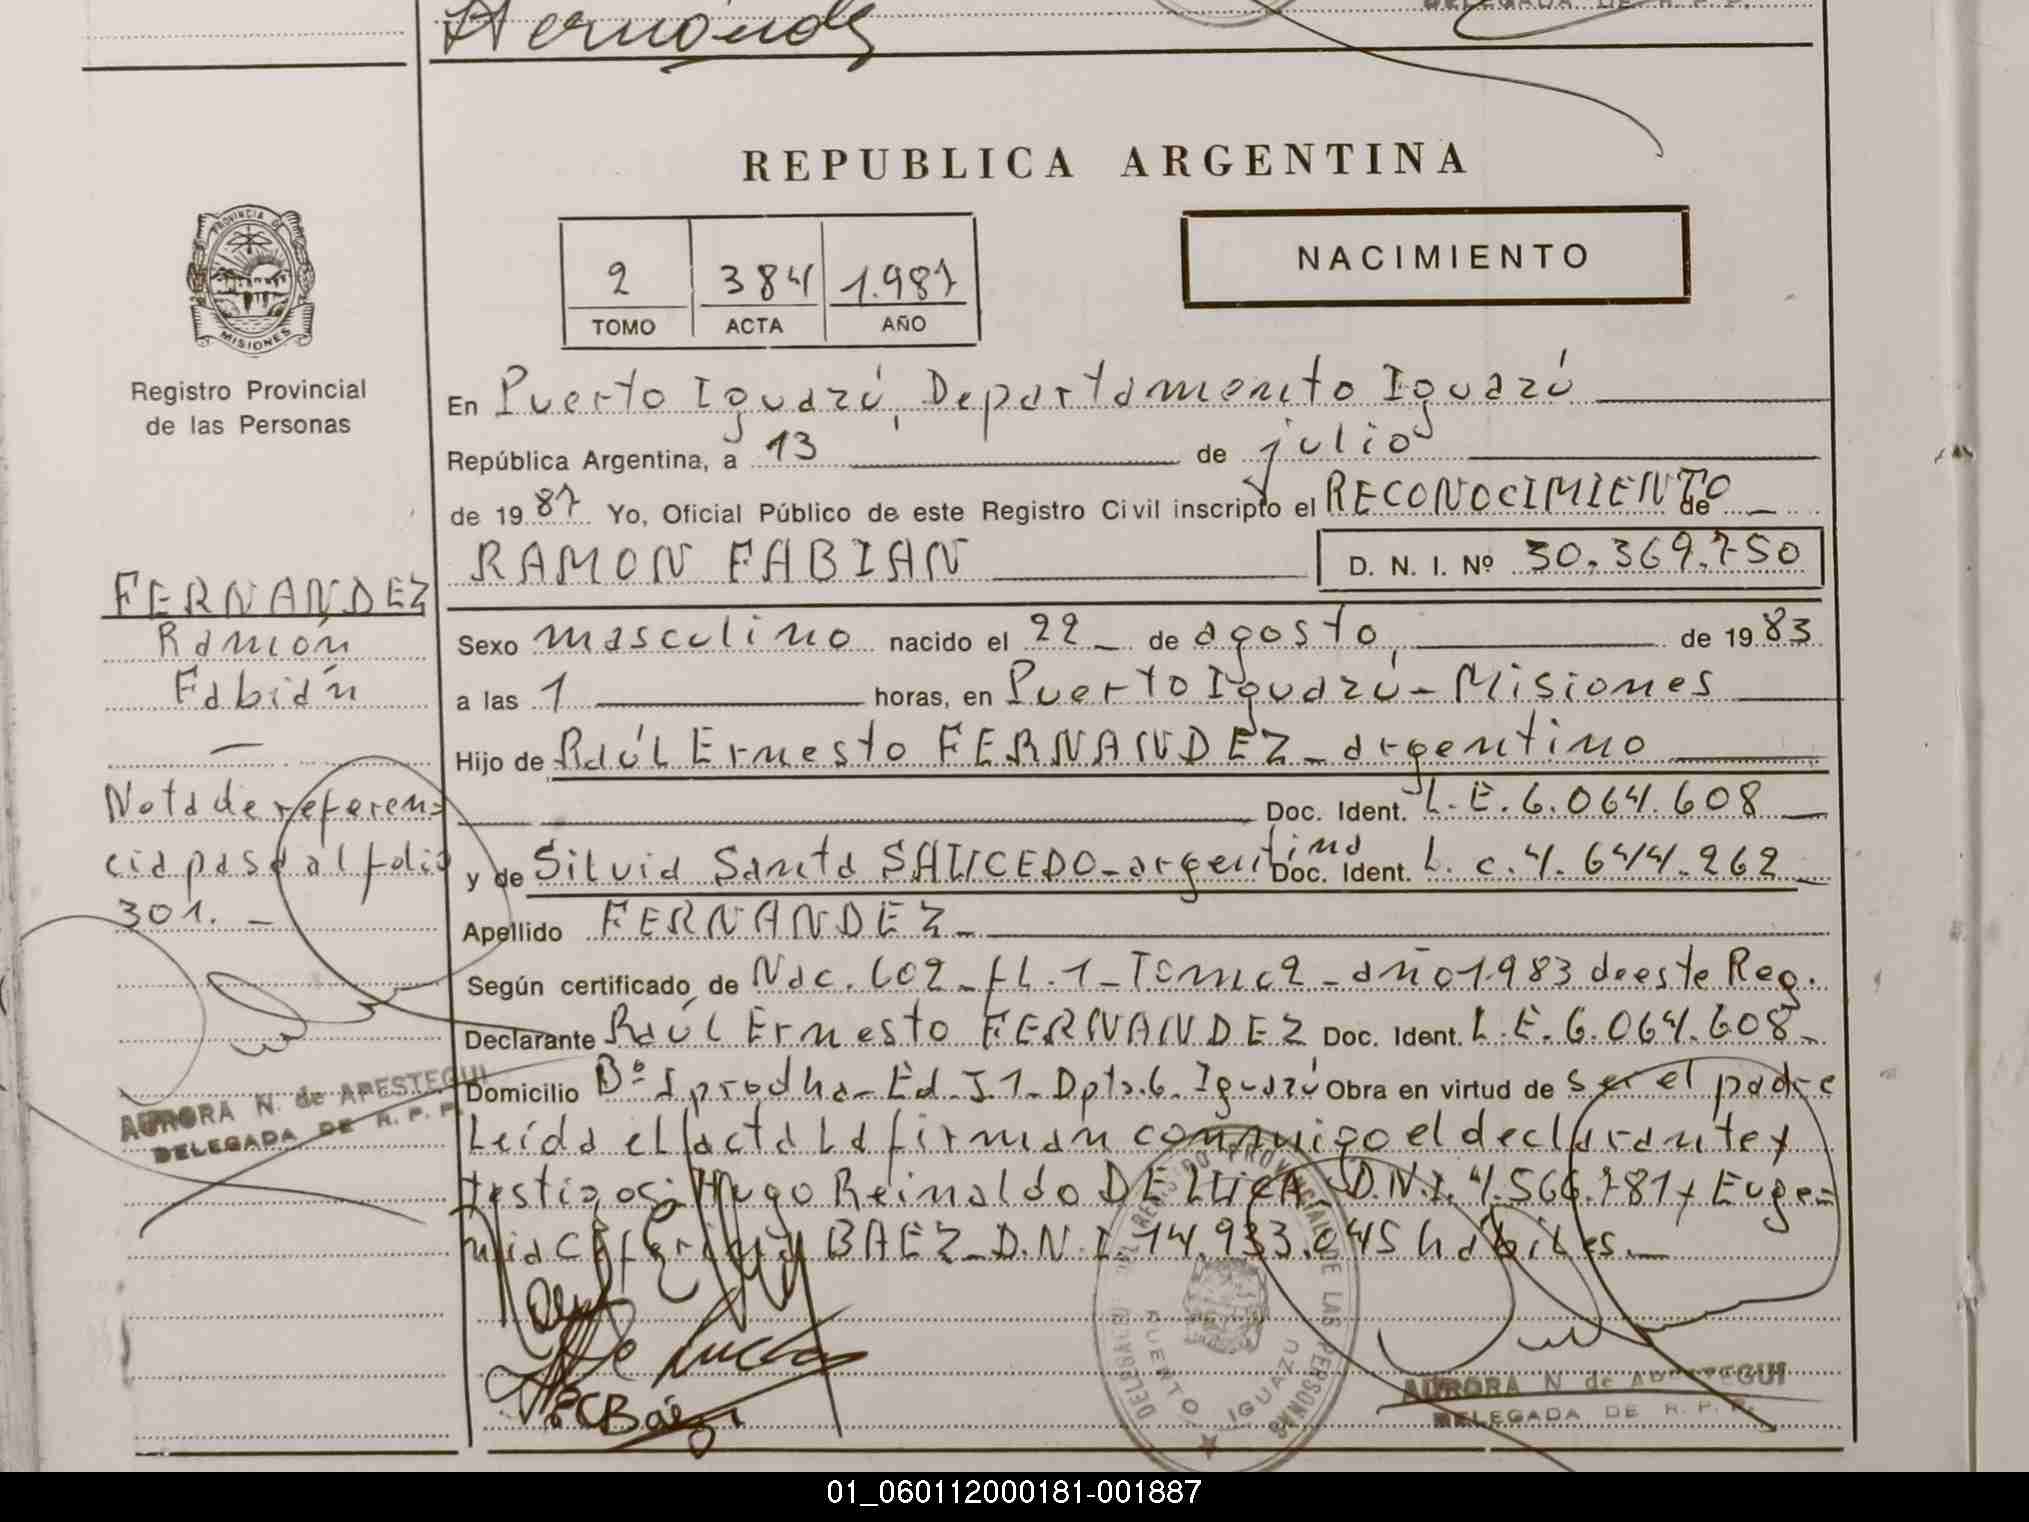 Hernández
DELEGADA DE R. P. P.
REPUBLICA ARGENTINA
PROVINCIA DE
MISIONES
Registro Provincial
de las Personas
2 384 1.987
TOMO ACTA AÑO
NACIMIENTO
En Puerto Iguazú, Departamento Iguazú
República Argentina, a 13 de julio
de 1987 Yo, Oficial Público de este Registro Civil inscripto el RECONOCIMIENTO de
RAMON FABIAN D. N. I. Nº 30.369.750
FERNANDEZ
Ramón
Fabián
Sexo masculino nacido el 22 de agosto, de 1983
a las 1 horas, en Puerto Iguazú - Misiones
Hijo de Raúl Ernesto FERNANDEZ - argentino
Doc. Ident. L.E. 6.064.608
y de Silvia Santa SALICEDO - argentina Doc. Ident. L.c. 4.644.262
Apellido FERNANDEZ -
Según certificado de Nac. 602 - fl. 1 - Tomo 2 - año 1983 de este Reg.
Declarante Raúl Ernesto FERNANDEZ Doc. Ident. L.E. 6.064.608 -
Domicilio Bº Iprodha - Ed. J1 - Dpto. 6. Iguazú Obra en virtud de ser el padre
Leída el acta La firman conmigo el declarante y
testigos: Hugo Reinaldo DE LUCA D.N.I. 4.566.781 y Euge=
nia Ceferina BAEZ - D.N.I. 14.933.045 hábiles. -
Nota de referen=
cia pasa al folio
301. -
AURORA N. de APESTEGUI
DELEGADA DE R. P. P.
De Lucca
ECBáez
REGISTRO PROVINCIAL DE LAS PERSONAS
PUERTO IGUAZU
AURORA N. de APESTEGUI
DELEGADA DE R. P. P.
01_060112000181-001887